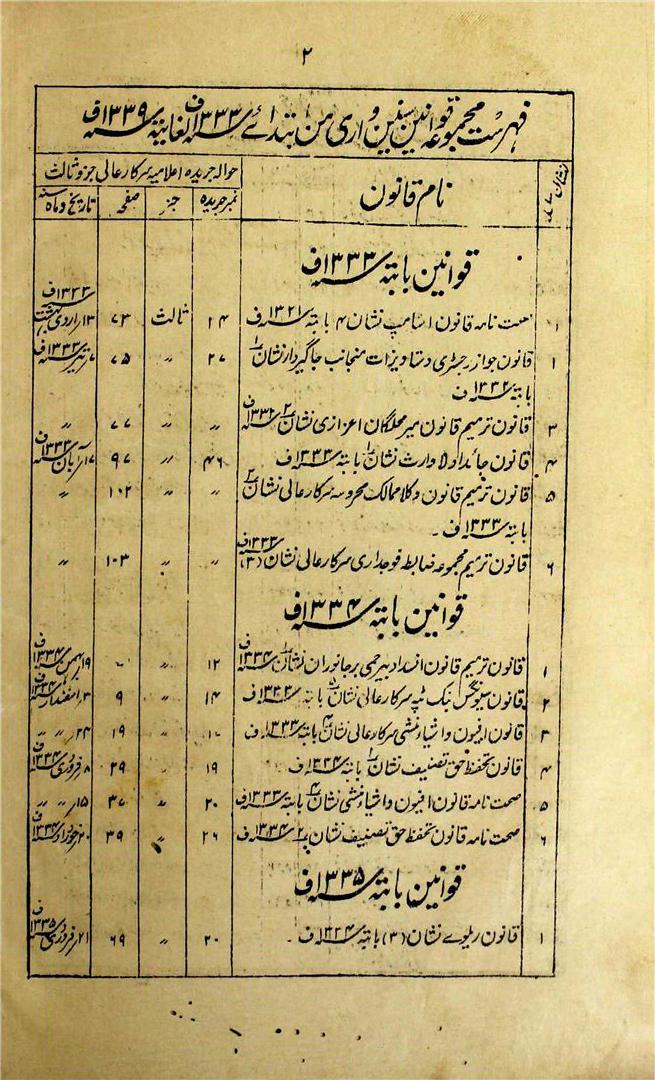 ۲
فہرست مجموعہ قوانین سنین واری من ابتدائے ۱۳۳۳ف لغایتہ ۱۳۳۹ف
حوالہ جریدہ اعلامیہ سرکار عالی جزو ثالث
نام قانون نمبر جریدہ جز صفحہ تاریخ و ماہ سنہ
قوانین بابتہ ۱۳۳۳ف
صحت نامہ قانون اسٹامپ نشان ۴ بابتہ ۱۳۲۱ف ۲۴ ثالث ۷۳ ۱۳؍اردی بہشت ۱۳۳۳ف
۱ قانون جواز رجسٹری دستاویزات منجانب جاگیردار نشان ۱ ۲۷ 〃 ۷۵ ۷؍تیر ۱۳۳۳ف
بابتہ ۱۳۳۲ف
۳ قانون ترمیم قانون میر محلگان اعزازی نشان ۲ ۱۳۳۲ف 〃 〃 ۷۷ 〃
۴ قانون جائداد لاوارث نشان ۱ بابتہ ۱۳۳۳ف ۴۶ 〃 ۹۷ ۱۷؍آبان ۱۳۳۳ف
۵ قانون ترمیم قانون وکلا ممالک محروسہ سرکار عالی نشان ۲ 〃 〃 ۱۰۲ 〃
بابتہ ۱۳۳۳ف۔
۶ قانون ترمیم مجموعہ ضابطہ فوجداری سرکار عالی نشان (۳) ۱۳۳۳ف 〃 〃 ۱۰۳ 〃
قوانین بابتہ ۱۳۳۴ف
۱ قانون ترمیم قانون انسداد بیرحمی بر جانوران نشان ۱ ۱۳۳۴ف ۱۲ 〃 ۱۹؍بہمن ۱۳۳۴ف
۲ قانون سیونگس بنک ٹپہ سرکار عالی نشان ۵ بابتہ ۱۳۳۳ف ۱۴ 〃 ۹ ۳؍اسفندار ۱۳۳۴ف
۳ قانون افیون و اشیاء منشی سرکار عالی نشان ۴ بابتہ ۱۳۳۳ف 〃 ۱۹ ۲۴؍〃 〃
۴ قانون تحفظ حق تصنیف نشان ۱ بابتہ ۱۳۳۴ف ۱۹ 〃 ۲۹ ۸؍فروردی ۱۳۳۴ف
۵ صحت نامہ قانون افیون و اشیاء منشی نشان ۴ بابتہ ۱۳۳۳ف ۲۰ 〃 ۳۷ ۱۵؍〃 〃
۶ صحت نامہ قانون تحفظ حق تصنیف نشان ۲ بابتہ ۱۳۳۴ف ۲۶ 〃 ۳۹ ۲۰؍خورداد ۱۳۳۴ف
قوانین بابتہ ۱۳۳۵ف
۱ قانون ریلوے نشان (۳) بابتہ ۱۳۳۴ف۔ ۲۰ 〃 ۶۹ ۲۱؍فروردی ۱۳۳۵ف